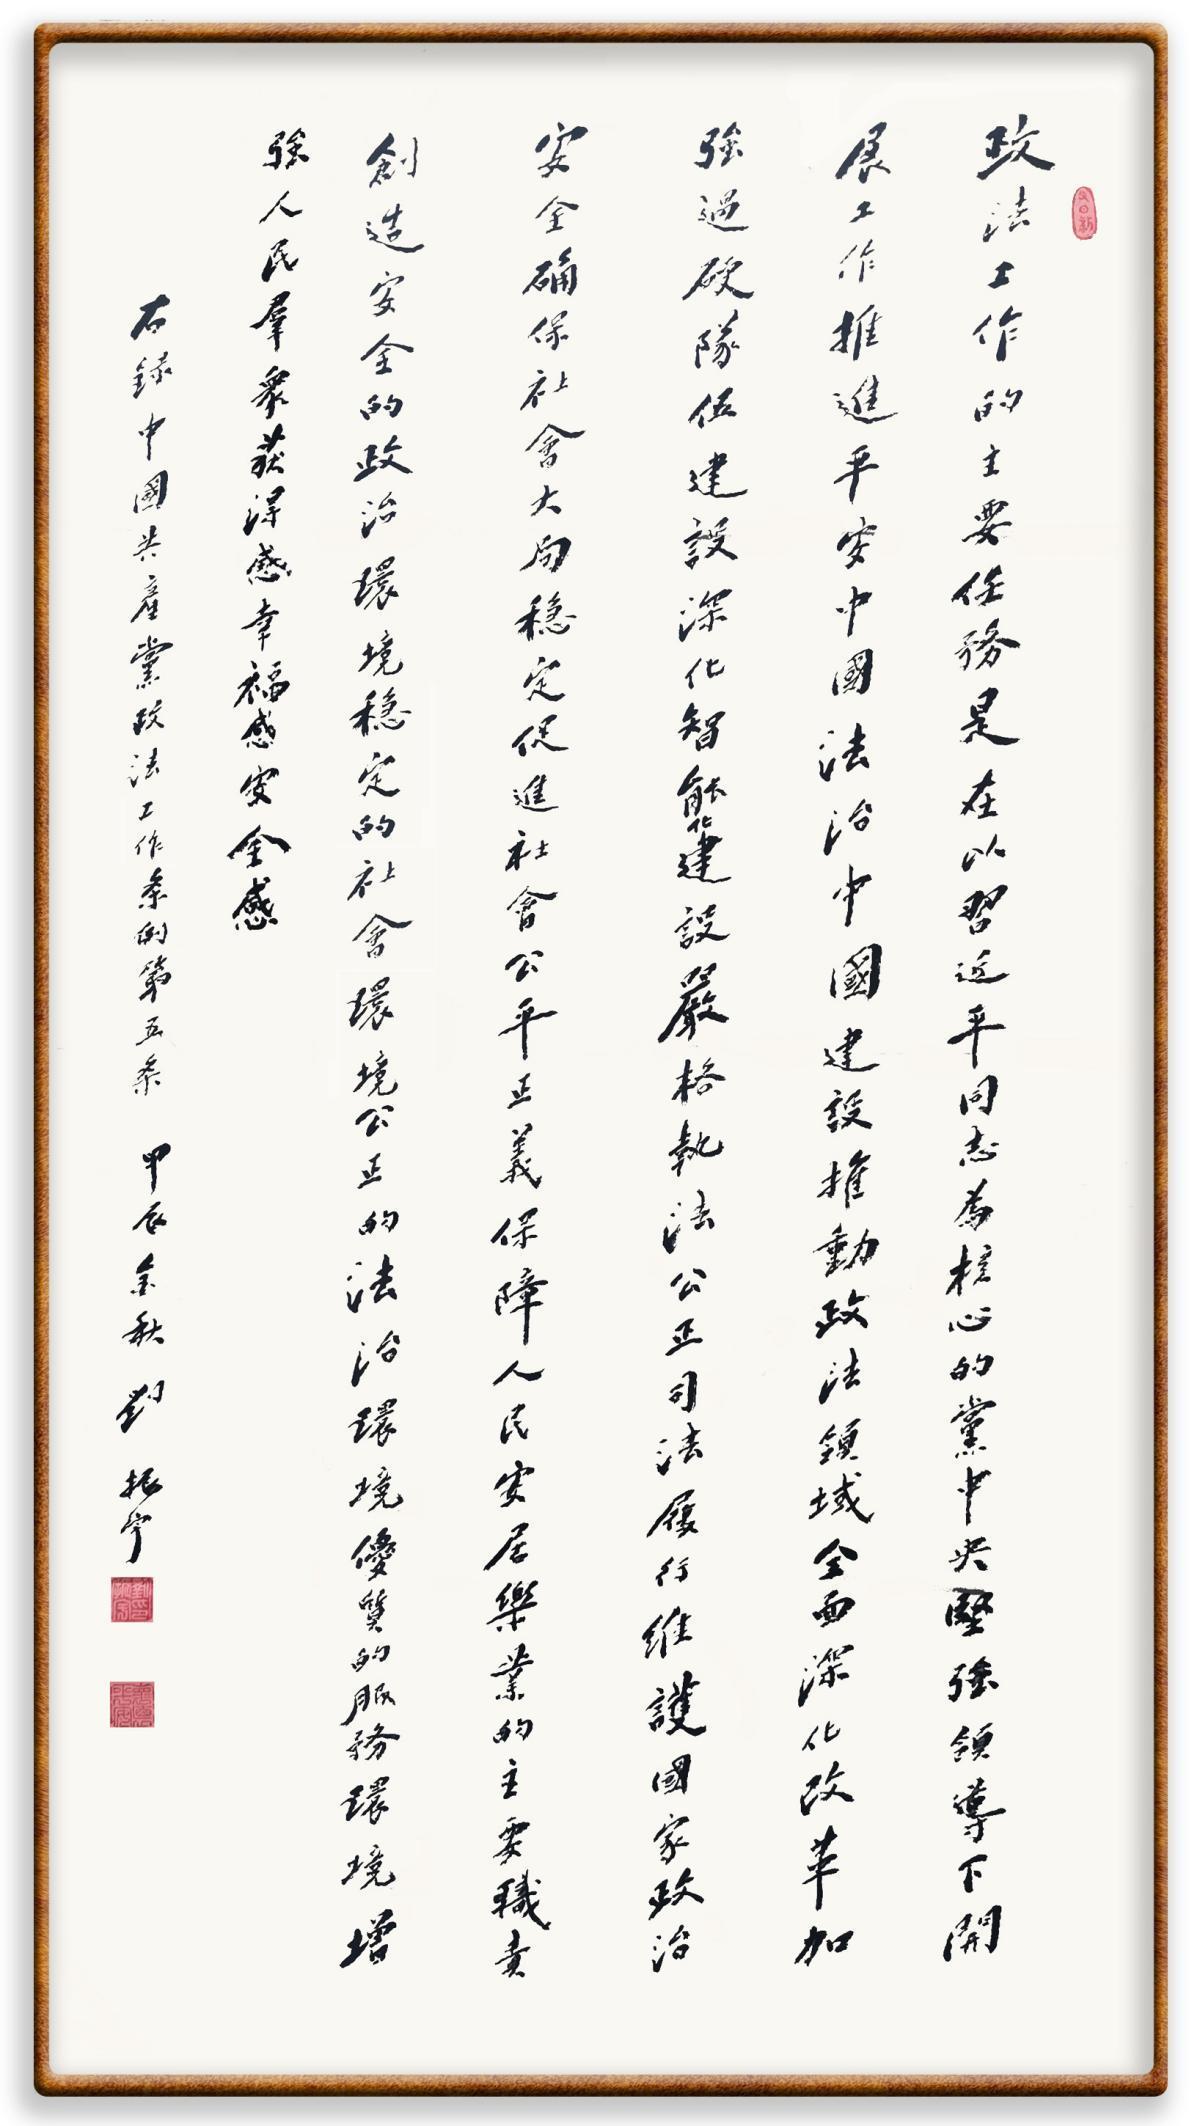 政法工作的主要任務是在以習近平同志為核心的黨中央堅強領導下開
展工作推進平安中國法治中國建設推動政法領域全面深化改革加
強過硬隊伍建設深化智能化建設嚴格執法公正司法履行維護國家政治
安全确保社會大局穩定促進社會公平正義保障人民安居樂業的主要職責
創造安全的政治環境穩定的社會環境公正的法治環境優質的服務環境增
強人民羣衆获得感幸福感安全感
右録中國共產黨政法工作条例第五条 甲辰金秋 劉振宇